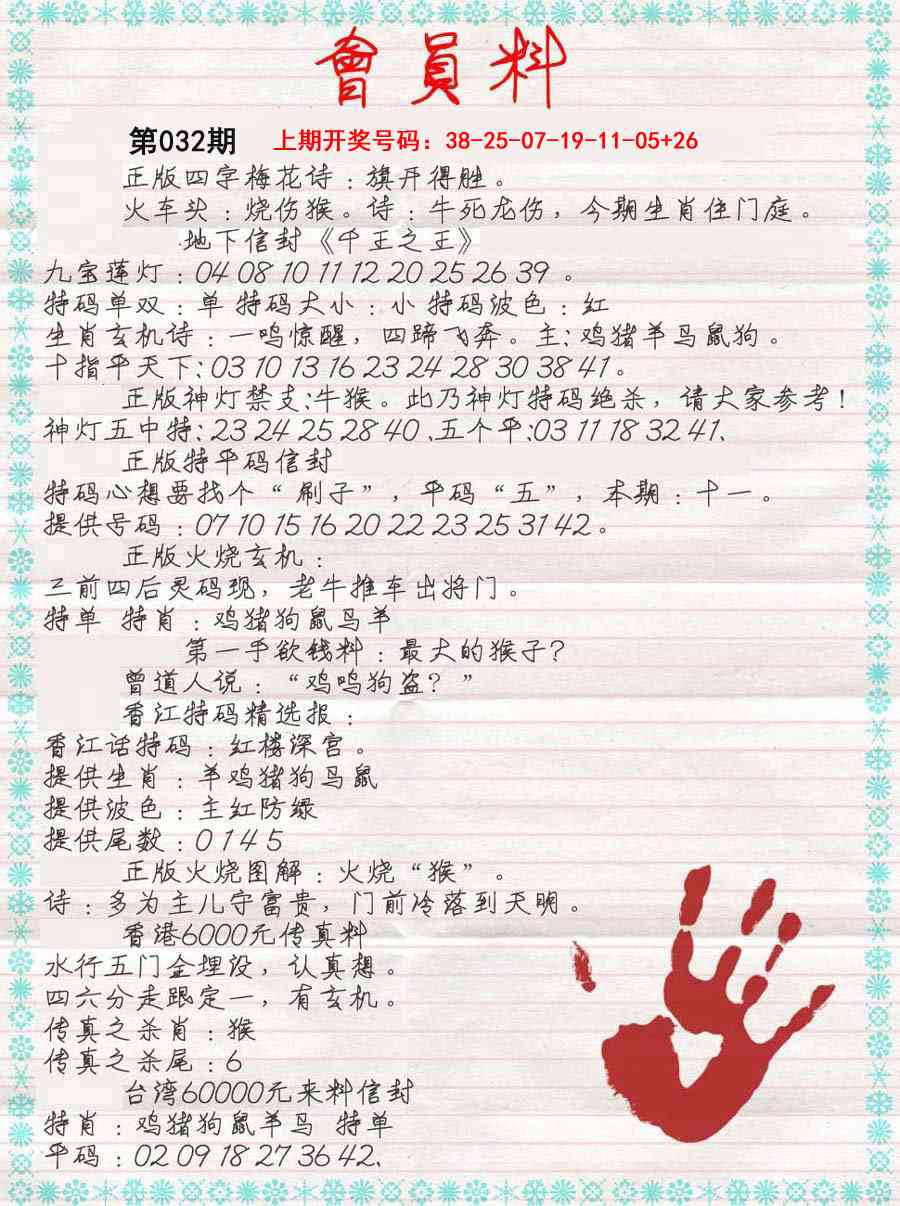 會員料
第032期 上期开奖号码：38-25-07-19-11-05+26
正版四字梅花诗：旗开得胜。
火车头：烧伤猴。诗：牛死龙伤，今期生肖住门庭。
地下信封《千王之王》
九宝莲灯：04 08 10 11 12 20 25 26 39 。
特码单双：单 特码大小：小 特码波色：红
生肖玄机诗：一鸣惊醒，四蹄飞奔。主：鸡猪羊马鼠狗。
十指平天下：03 10 13 16 23 24 28 30 38 41。
正版神灯禁支：牛猴。此乃神灯特码绝杀，请大家参考！
神灯五中特：23 24 25 28 40 、五个平：03 11 18 32 41、
正版特平码信封
特码心想要找个“刷子”，平码“五”，本期：十一。
提供号码：07 10 15 16 20 22 23 25 31 42。
正版火烧玄机：
三前四后灵码现，老牛推车出将门。
特单 特肖：鸡猪狗鼠马羊
第一手欲钱料：最大的猴子？
曾道人说：“鸡鸣狗盗？”
香江特码精选报：
香江话特码：红楼深宫。
提供生肖：羊鸡猪狗马鼠
提供波色：主红防绿
提供尾数：0 1 4 5
正版火烧图解：火烧“猴”。
诗：多为主儿守富贵，门前冷落到天明。
香港6000元传真料
水行五门金埋设，认真想。
四六分走跟定一，有玄机。
传真之杀肖：猴
传真之杀尾：6
台湾60000元来料信封
特肖：鸡猪狗鼠羊马 特单
平码：02 09 18 27 36 42、